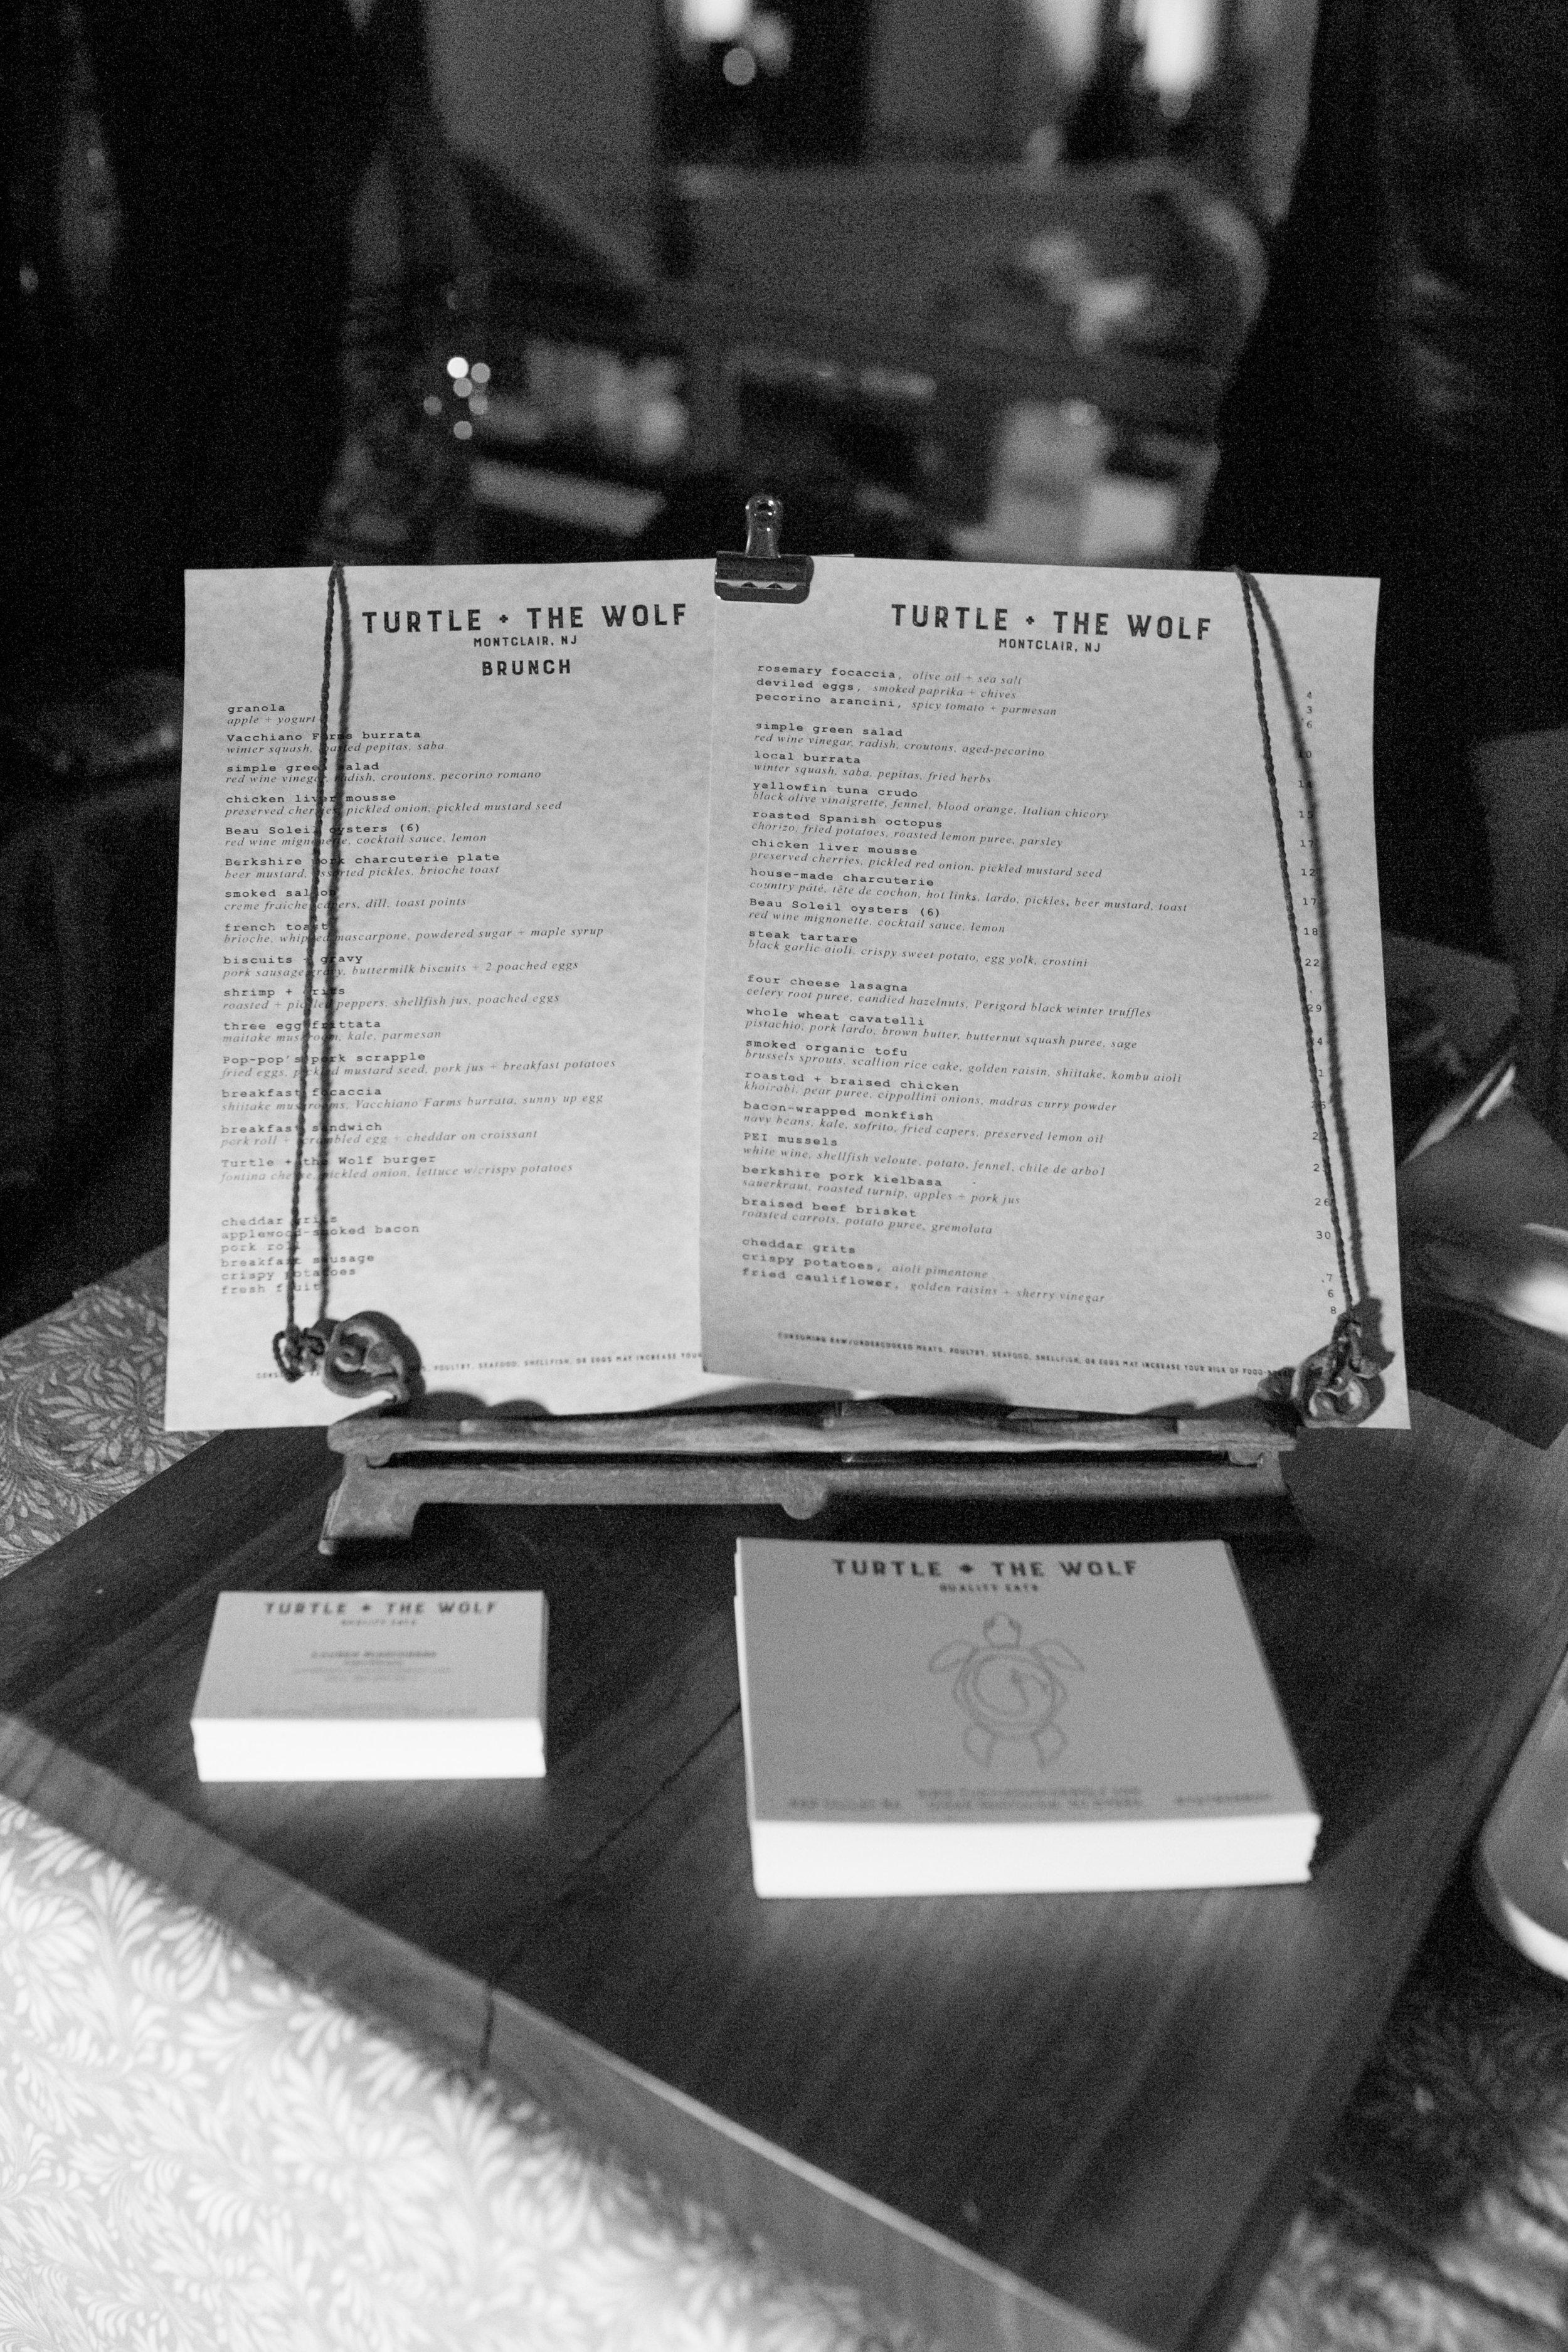 TURTLE + THE WOLF
MONTCLAIR, NJ
BRUNCH
granola
apple + yogurt
Vacchiano Farms burrata
winter squash, toasted pepitas, saba
simple green salad
red wine vinegar, radish, croutons, pecorino romano
chicken liver mousse
preserved cherries, pickled onion, pickled mustard seed
Beau Soleil oysters (6)
red wine mignonette, cocktail sauce, lemon
Berkshire pork charcuterie plate
beer mustard, assorted pickles, brioche toast
smoked salmon
creme fraiche, capers, dill, toast points
french toast
brioche, whipped mascarpone, powdered sugar + maple syrup
biscuits + gravy
pork sausage gravy, buttermilk biscuits + 2 poached eggs
shrimp + grits
roasted + pickled peppers, shellfish jus, poached eggs
three egg frittata
maitake mushroom, kale, parmesan
Pop-pop's pork scrapple
fried eggs, pickled mustard seed, pork jus + breakfast potatoes
breakfast focaccia
shiitake mushrooms, Vacchiano Farms burrata, sunny up egg
breakfast sandwich
pork roll + scrambled egg + cheddar on croissant
Turtle + the Wolf burger
fontina cheese, pickled onion, lettuce w/crispy potatoes
cheddar grits
applewood-smoked bacon
pork roll
breakfast sausage
crispy potatoes
fresh fruit
POULTRY, SEAFOOD, SHELLFISH, OR EGGS MAY INCREASE YOUR
TURTLE + THE WOLF
MONTCLAIR, NJ
rosemary focaccia, olive oil + sea salt 4
deviled eggs, smoked paprika + chives 3
pecorino arancini, spicy tomato + parmesan 6
simple green salad
red wine vinegar, radish, croutons, aged-pecorino
local burrata
winter squash, saba, pepitas, fried herbs
yellowfin tuna crudo 15
black olive vinaigrette, fennel, blood orange, Italian chicory
roasted Spanish octopus 17
chorizo, fried potatoes, roasted lemon puree, parsley
chicken liver mousse 12
preserved cherries, pickled red onion, pickled mustard seed
house-made charcuterie 17
country pâté, tête de cochon, hot links, lardo, pickles, beer mustard, toast
Beau Soleil oysters (6) 18
red wine mignonette, cocktail sauce, lemon
steak tartare 22
black garlic aioli, crispy sweet potato, egg yolk, crostini
four cheese lasagna 29
celery root puree, candied hazelnuts, Perigord black winter truffles
whole wheat cavatelli
pistachio, pork lardo, brown butter, butternut squash puree, sage
smoked organic tofu
brussels sprouts, scallion rice cake, golden raisin, shiitake, kombu aioli
roasted + braised chicken
khoirabi, pear puree, cippollini onions, madras curry powder
bacon-wrapped monkfish
navy beans, kale, sofrito, fried capers, preserved lemon oil
PEI mussels
white wine, shellfish veloute, potato, fennel, chile de arbol
berkshire pork kielbasa 26
sauerkraut, roasted turnip, apples + pork jus
braised beef brisket 30
roasted carrots, potato puree, gremolata
cheddar grits 7
crispy potatoes, aioli pimentone 6
fried cauliflower, golden raisins + sherry vinegar 8
CONSUMING RAW/UNDERCOOKED MEATS, POULTRY, SEAFOOD, SHELLFISH, OR EGGS MAY INCREASE YOUR RISK OF FOOD-
TURTLE + THE WOLF
QUALITY EATS
TURTLE + THE WOLF
QUALITY EATS